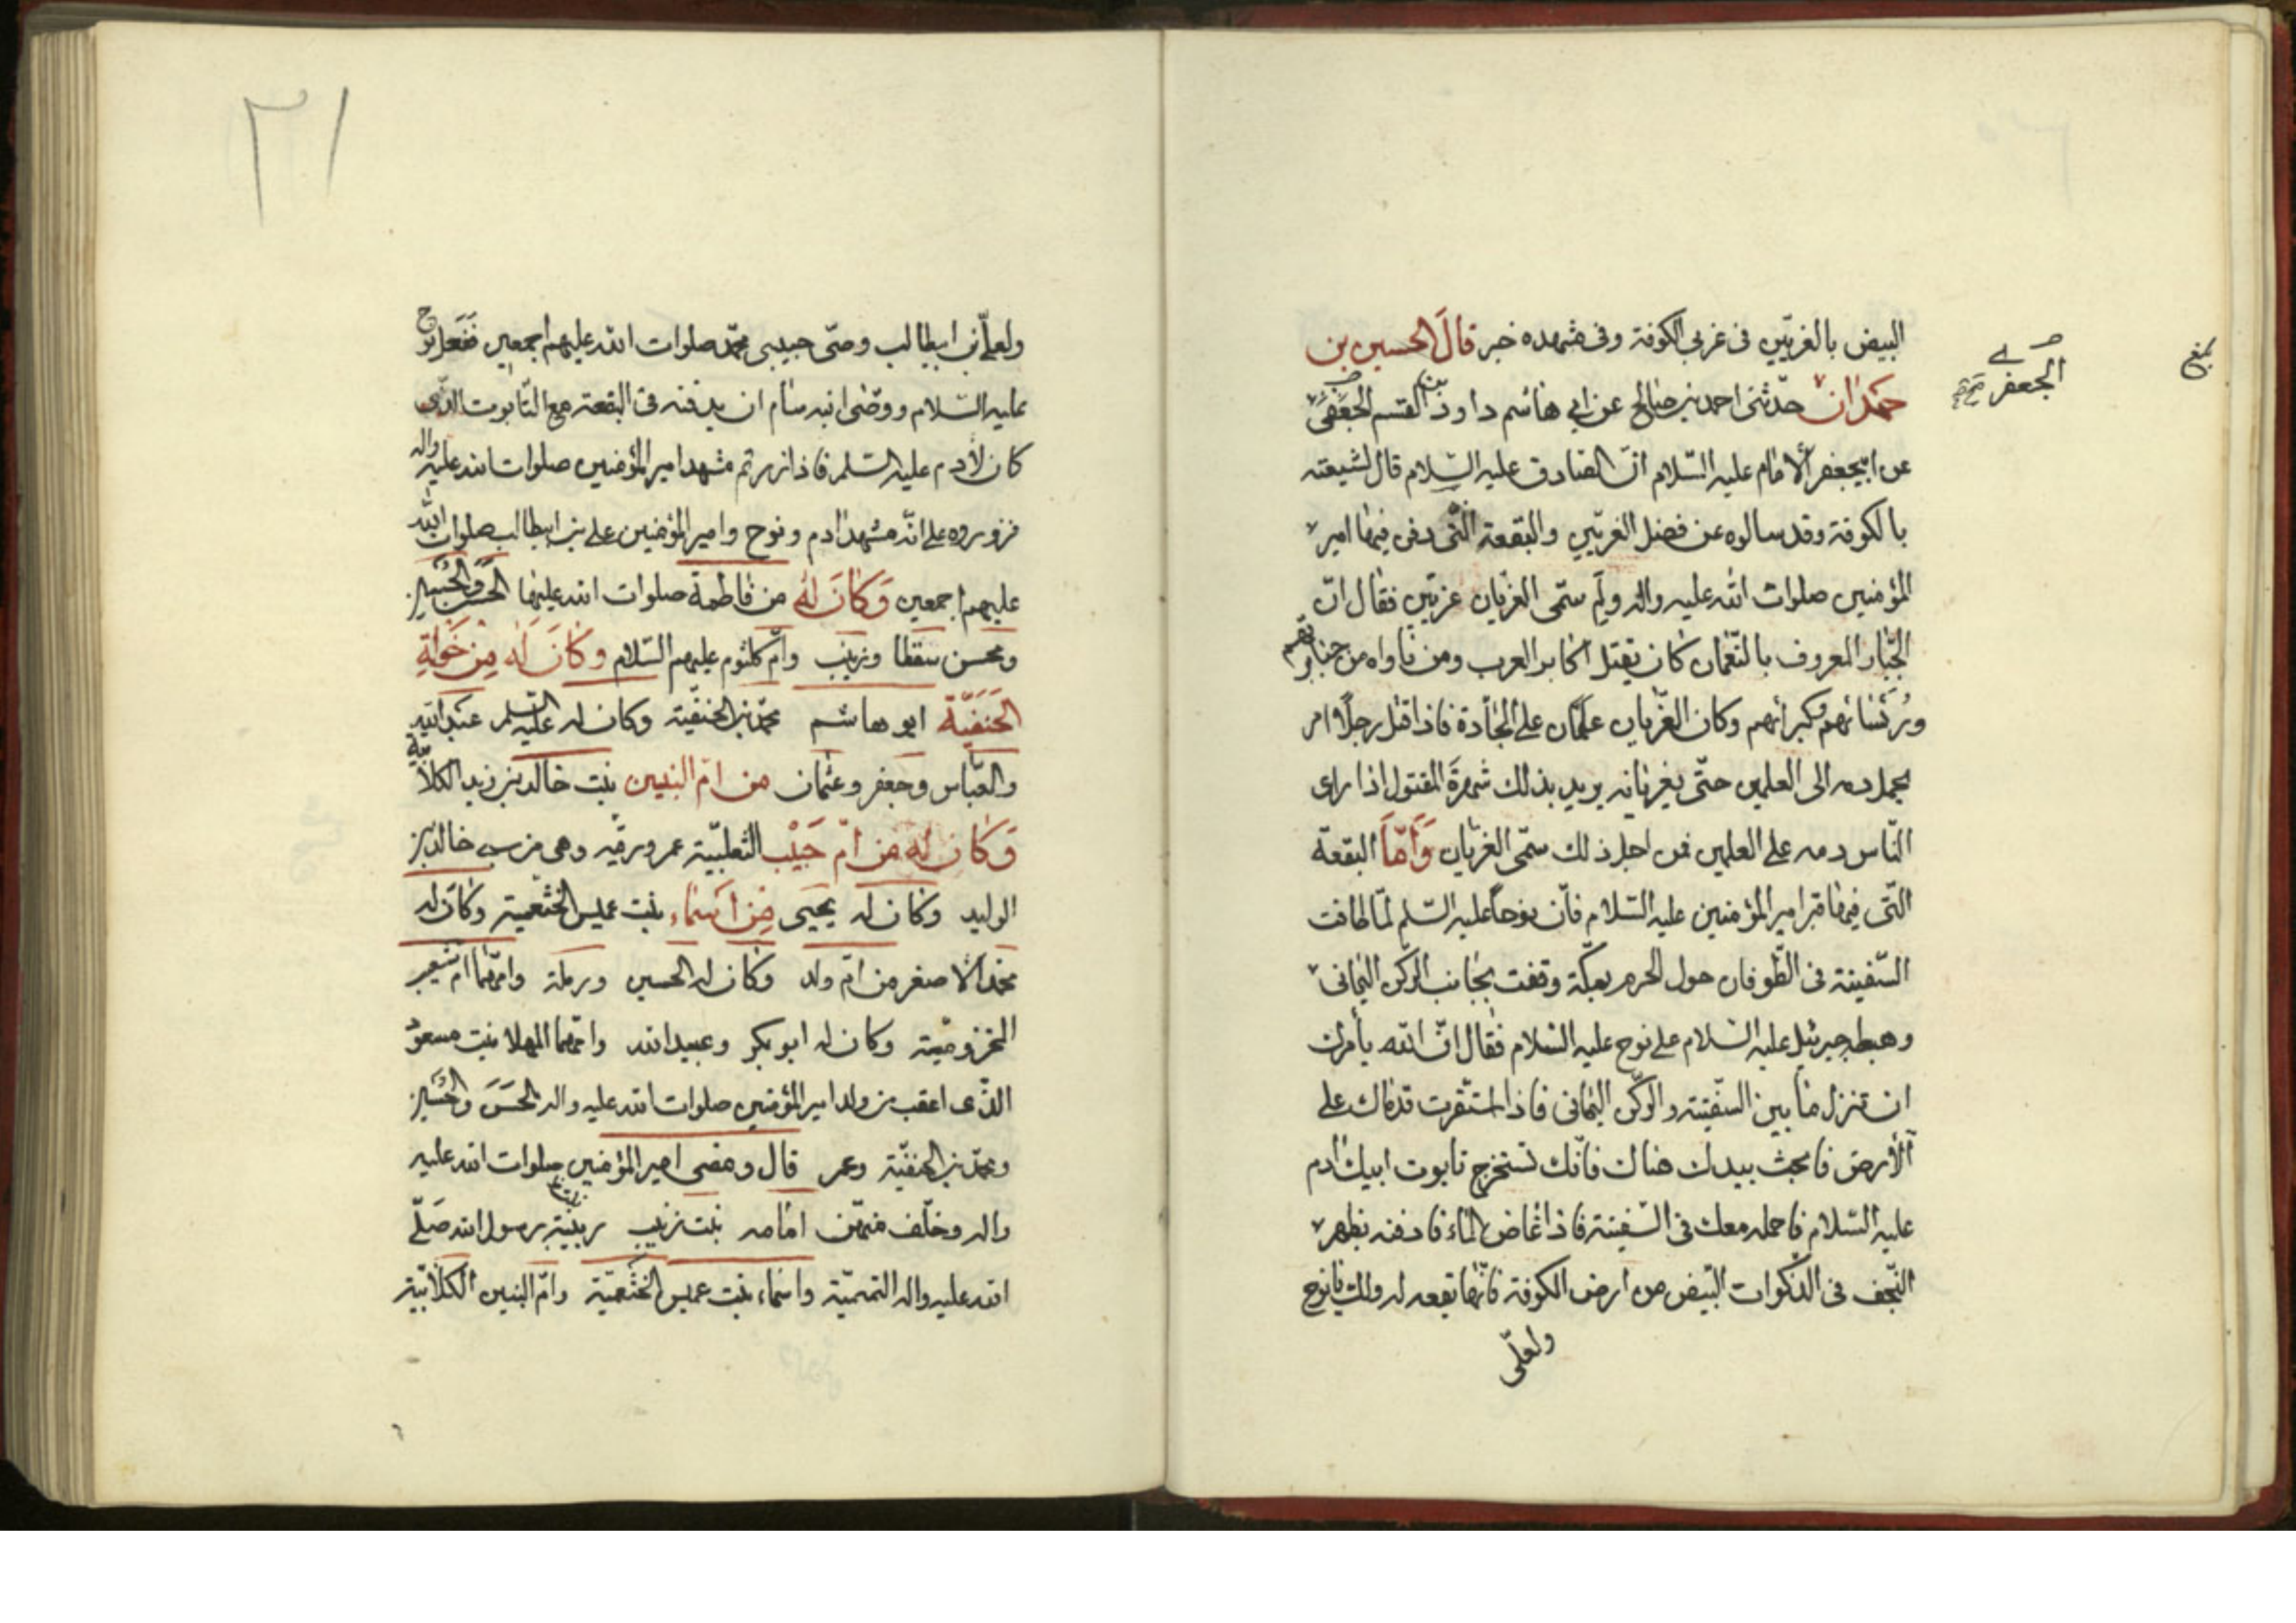 البيض بالغريّين فى غربى الكوفة وفى مشهده خبر قال الحسين بن
حمدان حدّثنى احمد بن صالح عن ابى هاشم داود بن القسم الجعفى
الجعفرى
عن ابيجعفر الامام عليه السّلام انّ الصادق عليه السّلام قال لشيعته
بالكوفة وقد سالوه عن فضل الغريّين والبقعة الّتى دفن فيها امير
المؤمنين صلوات الله عليه واله ولم سمّى الغريان غريّين فقال انّ
الجبّار المعروف بالنّعمان كان يقتل اكابر العرب ومن ناواه من جبابرتهم
ورُئسائهم وكبرائهم وكان الغريان علمان على الجادة فاذا قتل رجلا امر
بحمل دمه الى العلمين حتّى يغريانه يريد بذلك شهرة المقتول اذا راى
النّاس دمه على العلمين فمن اجل ذلك سمّى الغريان وَامّا البقعة
التّى فيها قبر امير المؤمنين عليه السّلام فانّ نوحاً عليه السّلم لمّا طافت
السّفينة فى الطّوفان حول الحرم بمكّة وقفت بجانب الركن اليمانى
وهبط جبرئيل عليه السّلام على نوح عليه السّلام فقال انّ الله يأمرك
ان تنزل ما بين السفّينة والركن اليمانى فاذا استقرت قدماك على
الأرض فابحث بيدك هناك فانّك تستخرج تابوت ابيك ادم
عليه السّلام فاحمله معك فى السّفينة فاذا غاض الماء فادفنه بظهر
النّجف فى الذكوات البّيض من ارض الكوفة فانّها بقعه له ولك يا نوح
ولعلّى
ولعلّى بن ابيطالب وصّى حبيبى محمّد صلوات الله عليهم اجمعين ففعل نوح
عليه السّلام ووصّى ابنه سام ان يدفنه فى البقعة مع التّابوت الذّى
كان لأدم عليه السّلم فاذا زرتم مشهد امير المؤمنين صلوات الله عليه واله
فزوروه على انّه مشهد ادم ونوح وامير المؤمنين على بن ابيطالب صلوات الله
عليهم اجمعين وَكانَ لهُ من فاطمة صلوات الله عليها الحَسَن والحُسَين
ومحسن سقطا وزينب وامّ كلثوم عليهم السّلام وَكانَ لَه مِن خَولةِ
الحَنَفيّة ابو هاشم محمّد بن الحنفّية وكان له عليه السّلم عبد الله
والعبّاس وجعفر وعثمان من امّ البنين بنت خالد بن زيد الكلابيه
وَكان له من امّ حَبيب الثعلبيّة عمر ورقيه وهى من سبى خالد بن
الوليد وكان له يحيى مِن اَسماء بنت عميس الخثعمية وكان له
محمّد الاصغر من امّ ولد وكان له الحسين ورملة وامّهما امّ شعيب
المخزومّية وكان له ابو بكر وعبيد الله وامّهما النهلا بنت مسعود
الذّى اعقب من ولد امير المؤمنين صلوات الله عليه واله الحَسَن والحُسَين
ومحمّد بن الحنفيّة وعمر قال ومضى امير المؤمنين صلوات الله عليه
واله وخلّف منهنّ امامه بنت زينب ربيبة رسول الله صَلّى
الله عليه واله التميميّة واسماء بنت عميس الخثعميّة وامّ البنين الكلابيّة
٢١